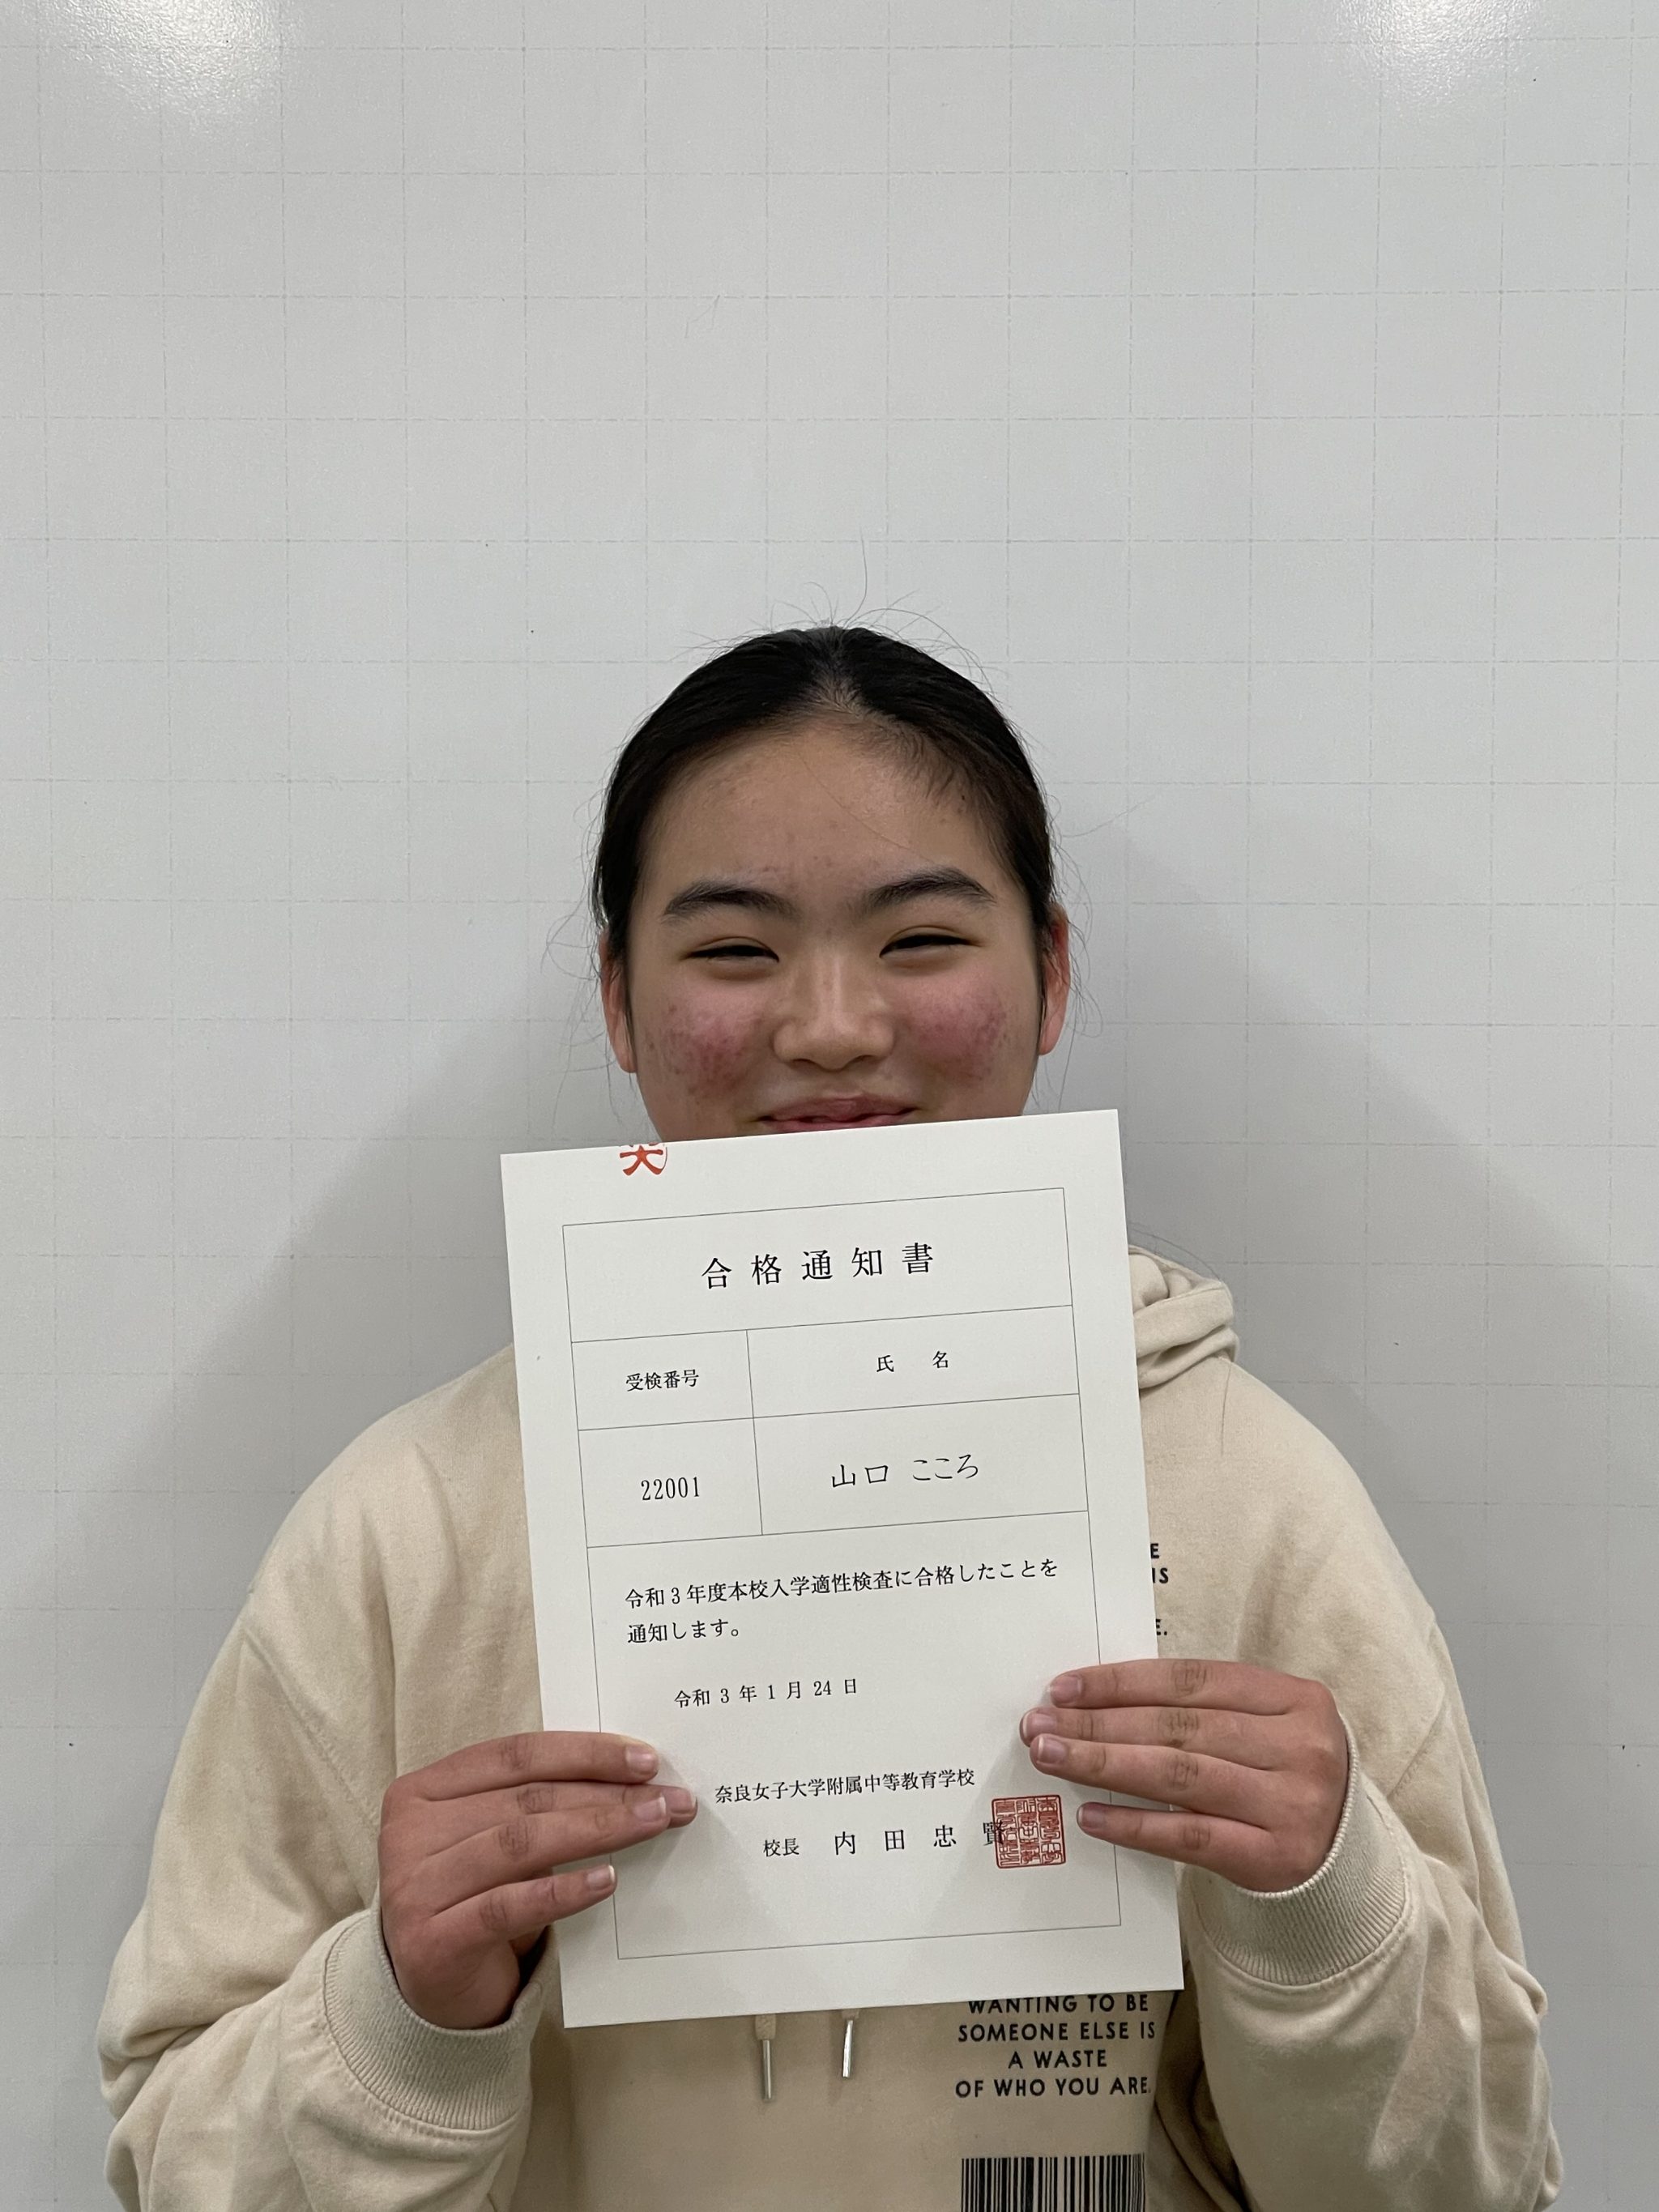 大
合格通知書
受検番号 氏名
22001 山口 こころ
令和3年度本校入学適性検査に合格したことを
通知します。
令和 3 年 1 月 24 日
奈良女子大学附属中等教育学校
校長 内田忠賢
E
IS
E.
WANTING TO BE
SOMEONE ELSE IS
A WASTE
OF WHO YOU ARE.